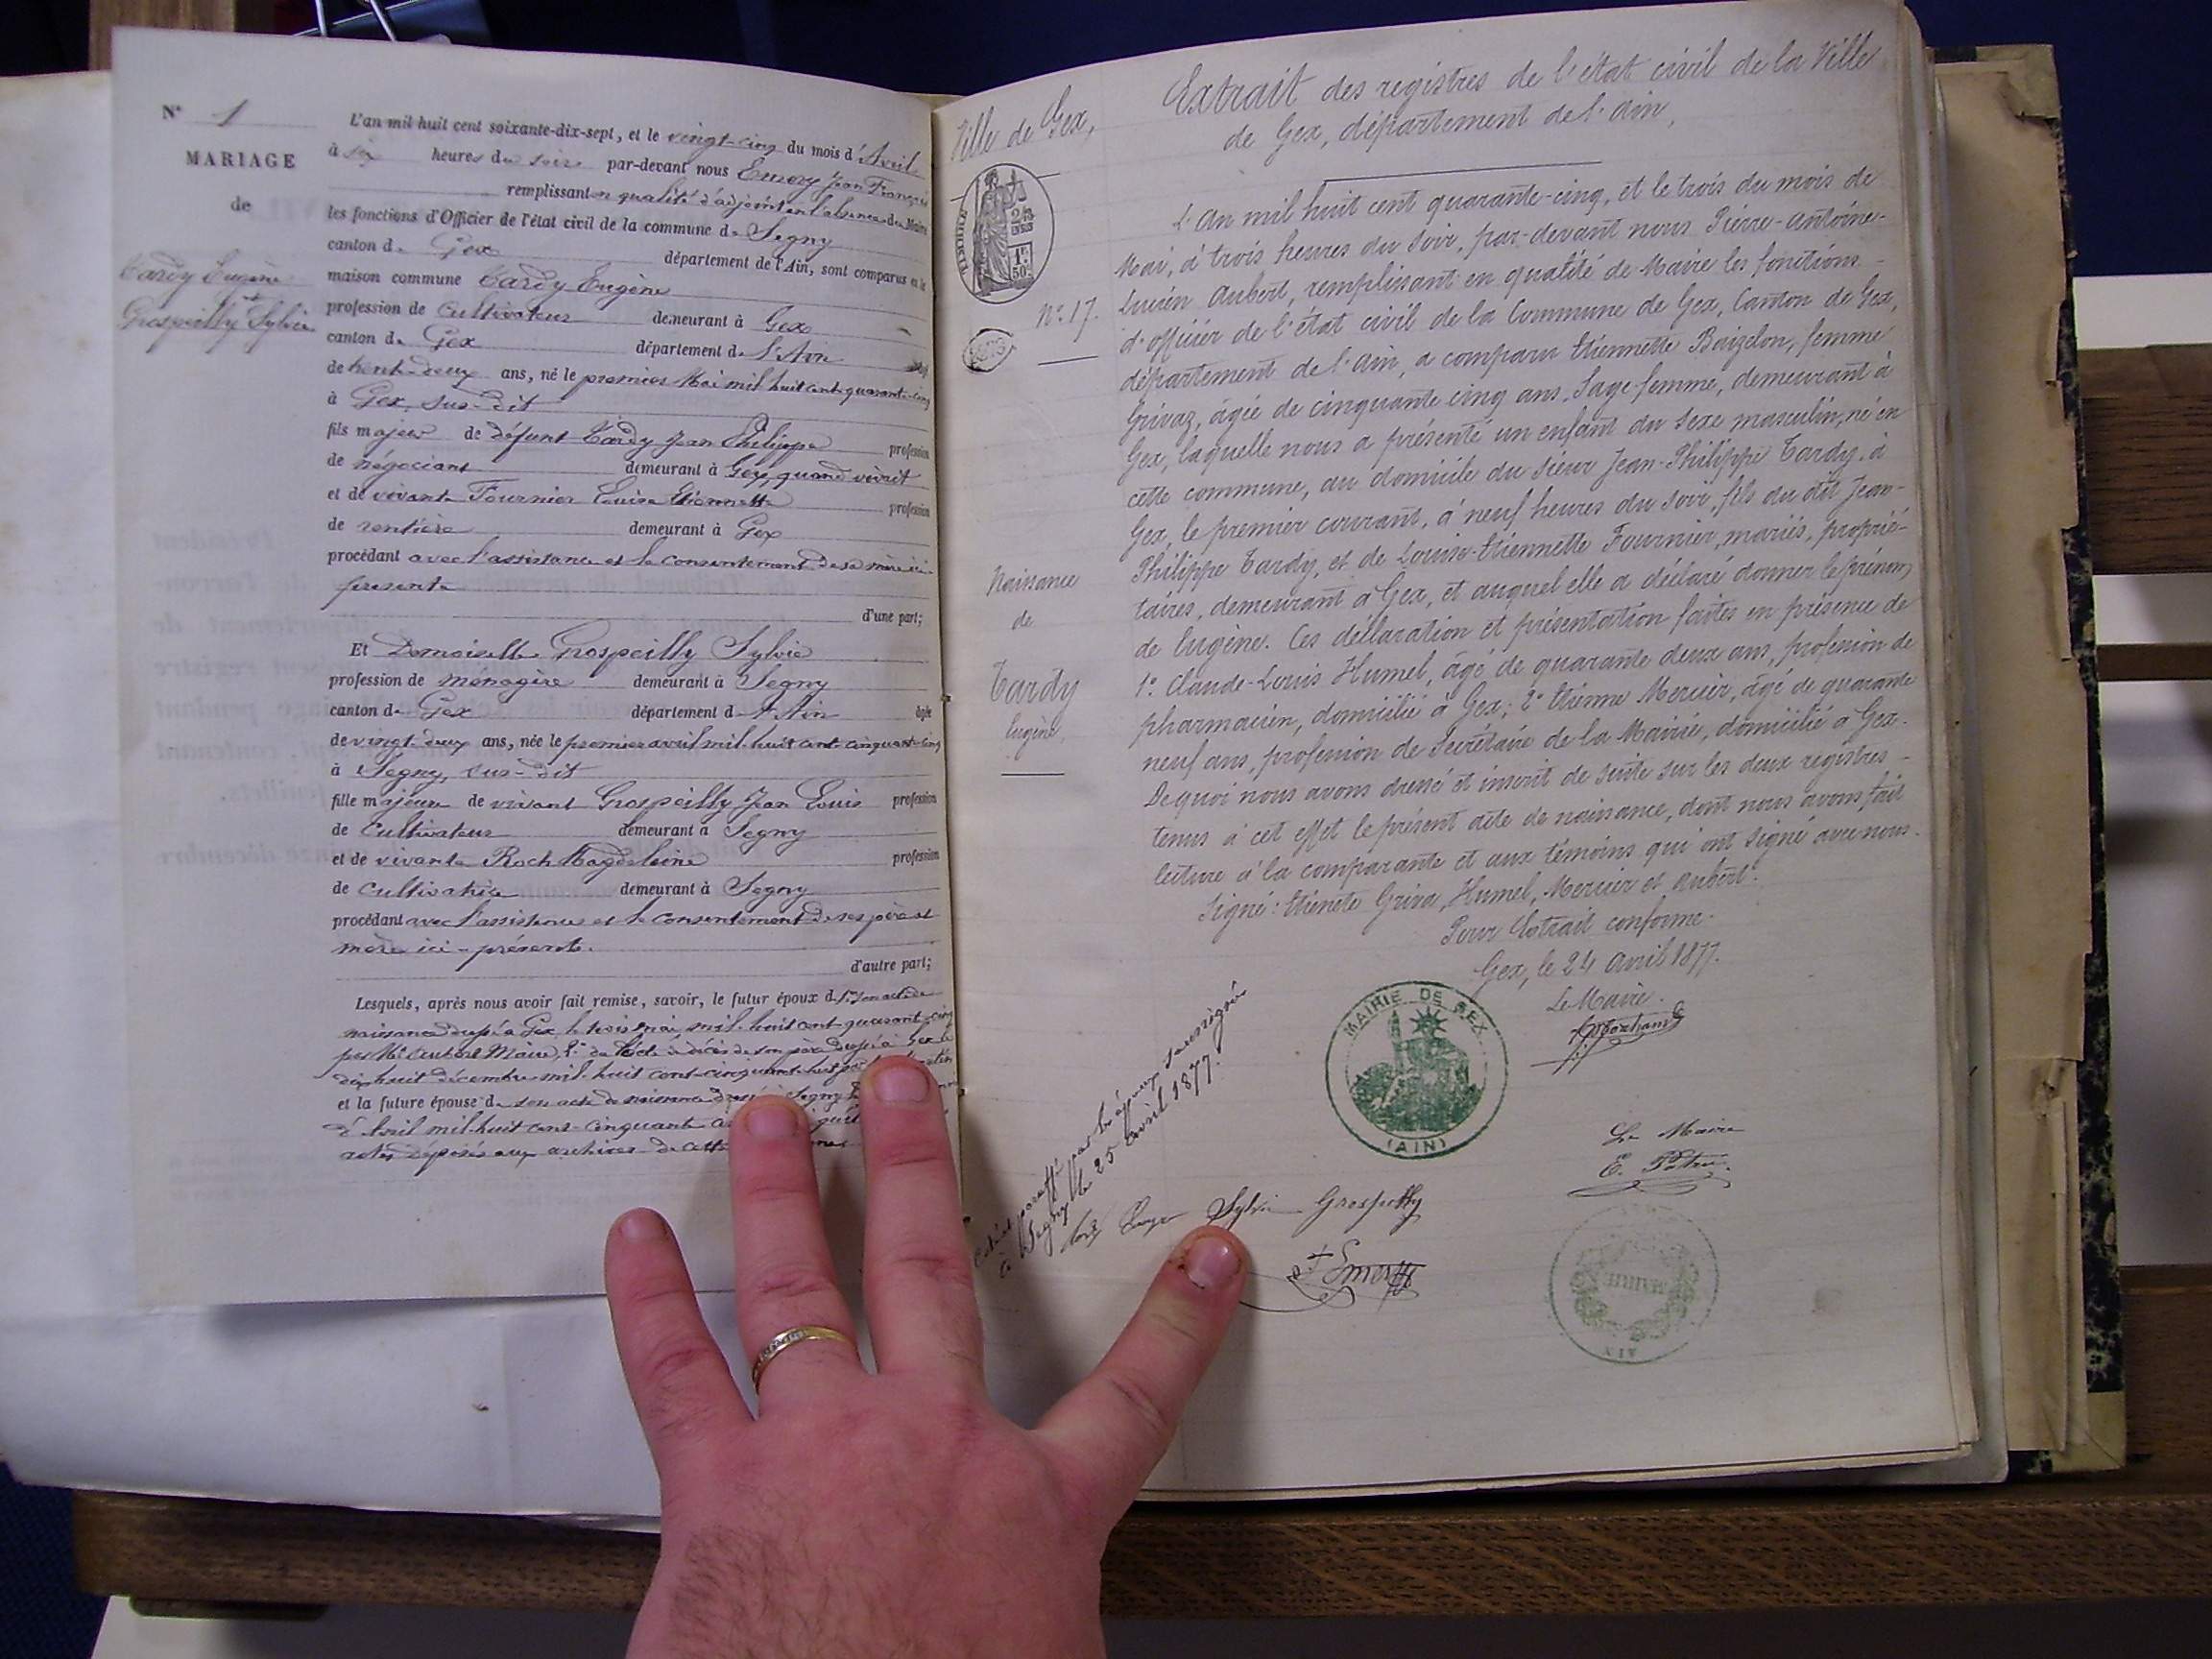 N° 1
MARIAGE
de
Tardy Eugène
et
Grospeilly Sylvie
L'an mil huit cent soixante-dix-sept, et le vingt-cinq du mois d'Avril
à six heures du soir par-devant nous Emery Jean François
remplissant en qualité d'adjoint en l'absence du Maire
les fonctions d'Officier de l'état civil de la commune de Segny
canton de Gex département de l'Ain, sont comparus en la
maison commune Tardy Eugène
profession de cultivateur demeurant à Gex
canton de Gex département de l'Ain âgé
de trente-deux ans, né le premier Mai mil huit cent quarante-cinq
à Gex, sus-dit
fils majeur de défunt Tardy Jean Philippe profession
de négociant demeurant à Gex, quand vivait
et de vivante Fournier Louise Etiennette profession
de rentière demeurant à Gex
procédant avec l'assistance et le consentement de sa mère ici
présente
d'une part;
Et Demoiselle Grospeilly Sylvie
profession de ménagère demeurant à Segny
canton de Gex département de l'Ain âgée
de vingt-deux ans, née le premier avril mil huit cent cinquante-cinq
à Segny, sus-dit
fille majeure de vivant Grospeilly Jean Louis profession
de cultivateur demeurant à Segny
et de vivante Roch Magdeleine profession
de cultivatrice demeurant à Segny
procédant avec l'assistance et le consentement de ses père et
mère ici-présents.
d'autre part;
Lesquels, après nous avoir fait remise, savoir, le futur époux de 1° son acte de
naissance dressé à Gex le trois mai mil huit cent quarante-cinq
par Mr Aubert Maire, 2° de l'acte de décès de son père dressé à Gex le
dix huit décembre mil huit cent cinquante-huit par
et la future épouse de son acte de naissance dressé à Segny
d'Avril mil huit cent cinquante
actes déposés aux archives de cette
Ville de Gex,
TIMBRE
N° 17.
Naissance
de
Tardy
Eugène
Extrait des registres de l'état civil de la Ville
de Gex, département de l'Ain,
L'An mil huit cent quarante-cinq, et le trois du mois de
Mai, à trois heures du soir, par-devant nous Pierre-Antoine-
Lucien Aubert, remplissant en qualité de Maire les fonctions
d'officier de l'état civil de la Commune de Gex, Canton de Gex,
département de l'Ain, a comparu Etiennette Baizelon, femme
Grivaz, âgée de cinquante cinq ans, Sage-femme, demeurant à
Gex, laquelle nous a présenté un enfant du sexe masculin, né en
cette commune, au domicile du sieur Jean-Philippe Tardy, à
Gex, le premier courant, à neuf heures du soir, fils du dit Jean-
Philippe Tardy, et de Louise-Etiennette Fournier, mariés, proprié-
taires, demeurant à Gex, et auquel elle a déclaré donner le prénom
de Eugène. Ces déclaration et présentation faites en présence de
1° Claude-Louis Humel, âgé de quarante deux ans, profession de
pharmacien, domicilié à Gex; 2° Etienne Mercier, âgé de quarante
neuf ans, profession de Secrétaire de la Mairie, domicilié à Gex.
De quoi nous avons dressé et inscrit de suite sur les deux registres
tenus à cet effet le présent acte de naissance, dont nous avons fait
lecture à la comparante et aux témoins qui ont signé avec nous.
Signé: Etienete Griva, Humel, Mercier et Aubert.
Pour Extrait conforme.
Gex, le 24 avril 1877.
Le Maire.
MAIRIE DE GEX
(AIN)
paraffé par les époux soussignés
à Segny le 25 avril 1877.
Le Maire
Sylvie Grospeilly
Emery
MAIRIE
AIN